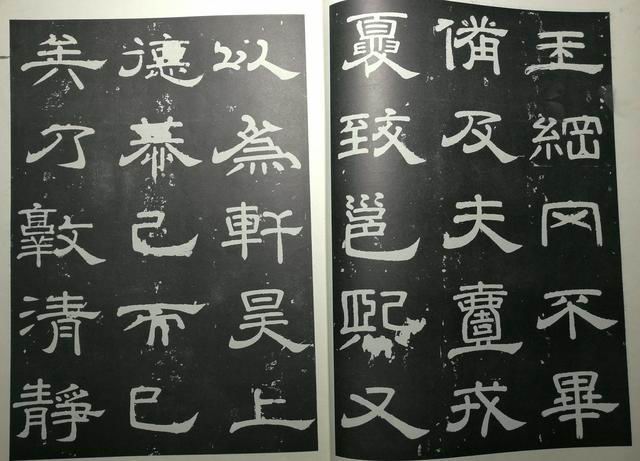 王綱罔不畢
備及夫壹戎
夏致邕熙又
以為軒昊上
德恭己而已
矣乃敦清靜